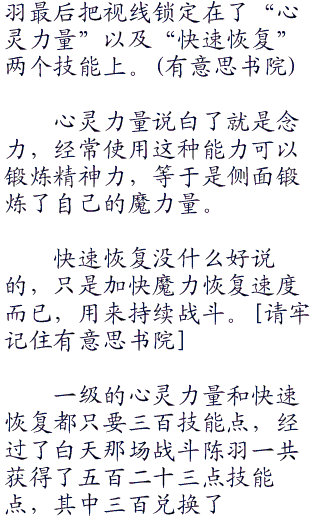 羽最后把视线锁定在了“心
灵力量”以及“快速恢复”
两个技能上。(有意思书院)
心灵力量说白了就是念
力，经常使用这种能力可以
锻炼精神力，等于是侧面锻
炼了自己的魔力量。
快速恢复没什么好说
的，只是加快魔力恢复速度
而已，用来持续战斗。[请牢
记住有意思书院]
一级的心灵力量和快速
恢复都只要三百技能点，经
过了白天那场战斗陈羽一共
获得了五百二十三点技能
点，其中三百兑换了